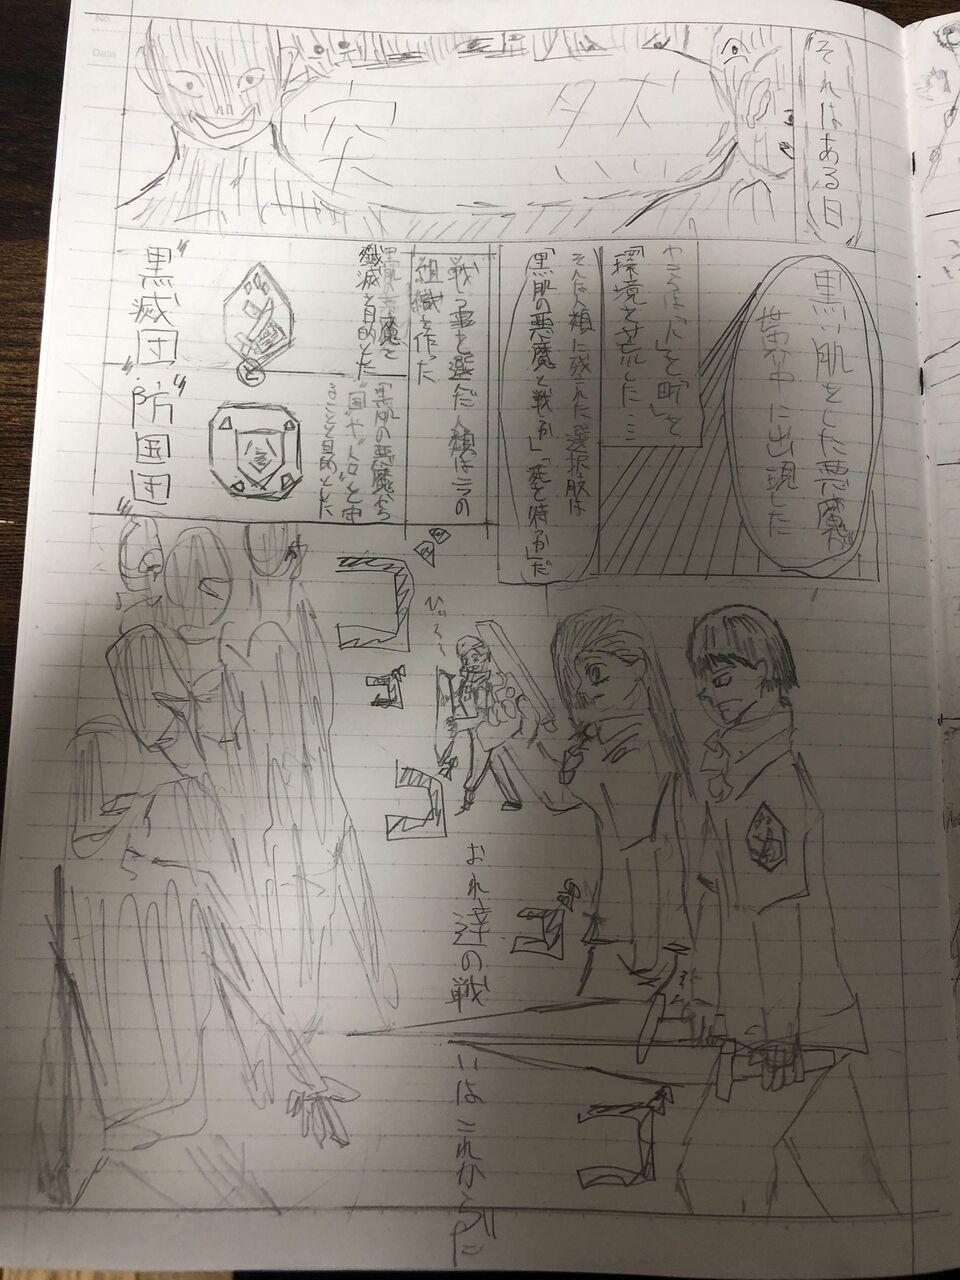 それはある日
突
ズ
タ
黒い肌をした悪魔が
世界中に出現した
やつらは「人」を「町」を
「環境を
そんな人類に残された選択肢は
「黒肌の悪魔と戦うか」「死を待つか」だ
戦う事を選んだ人類は二つの
組織を作った
黒肌の悪魔を
殲滅を目的とした
"黒滅団"
「黒肌の悪魔から
"国"や"人口"を守
ることを目的とした
"防国団"
ゴ
ゴ
ゴ
ゴ
ゴ
おれ達の戦
いはこれからだ
No.
Date